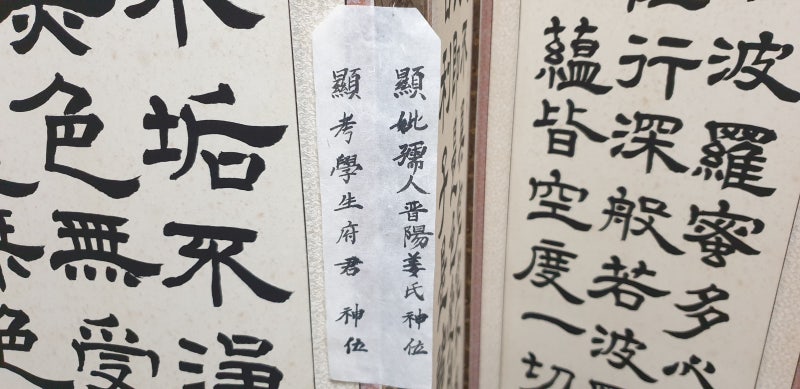 波羅蜜多心
行深般若波
蘊皆空度一切
顯妣孺人晋陽姜氏神位
顯考學生府君 神位
不垢不淨
色無受